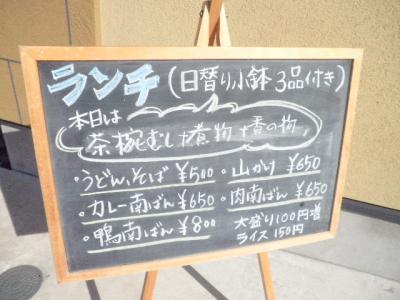 ランチ(日替り小鉢3品付き)
本日は
茶椀むし+煮物+香の物
・うどん、そば ¥500 ・山かけ ¥650
・カレー南ばん ¥650 ・肉南ばん ¥650
・鴨南ばん ¥800 大盛り100円増
ライス150円